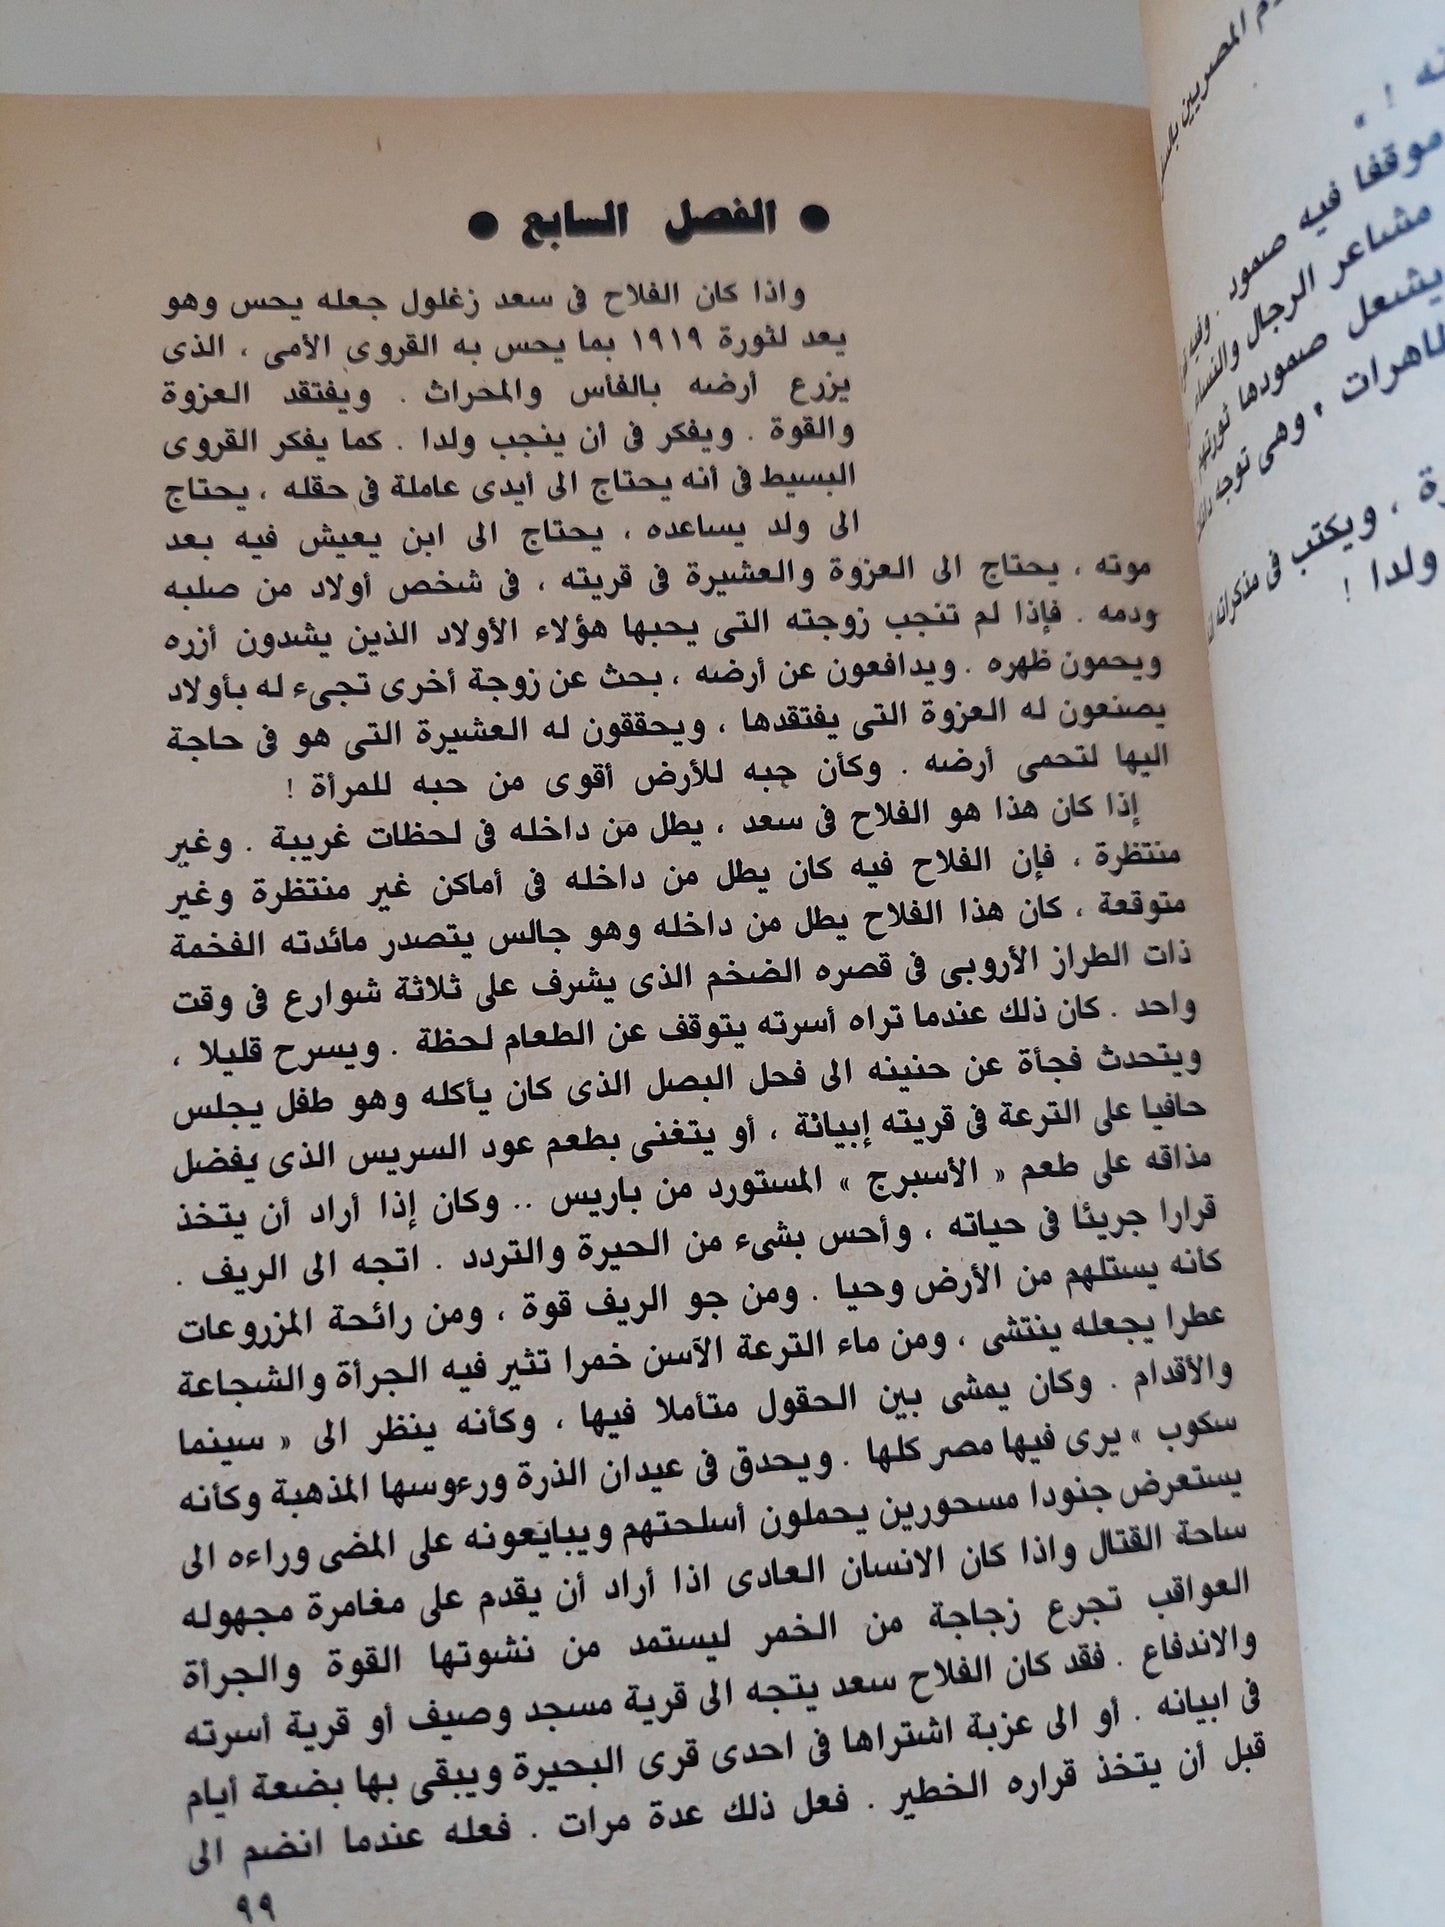 ● الفصل السابع ●
واذا كان الفلاح فى سعد زغلول جعله يحس وهو
يعد لثورة ١٩١٩ بما يحس به القروى الأمى ، الذى
يزرع أرضه بالفأس والمحراث . ويفتقد العزوة
والقوة . ويفكر فى أن ينجب ولدا . كما يفكر القروى
البسيط فى أنه يحتاج الى أيدى عاملة فى حقله ، يحتاج
الى ولد يساعده ، يحتاج الى ابن يعيش فيه بعد
موته ، يحتاج الى العزوة والعشيرة فى قريته ، فى شخص أولاد من صلبه
ودمه . فإذا لم تنجب زوجته التى يحبها هؤلاء الأولاد الذين يشدون أزره
ويحمون ظهره . ويدافعون عن أرضه ، بحث عن زوجة أخرى تجىء له بأولاد
يصنعون له العزوة التى يفتقدها ، ويحققون له العشيرة التى هو فى حاجة
اليها لتحمى أرضه . وكأن حبه للأرض أقوى من حبه للمرأة !
إذا كان هذا هو الفلاح فى سعد ، يطل من داخله فى لحظات غريبة . وغير
منتظرة ، فإن الفلاح فيه كان يطل من داخله فى أماكن غير منتظرة وغير
متوقعة ، كان هذا الفلاح يطل من داخله وهو جالس يتصدر مائدته الفخمة
ذات الطراز الأروبى فى قصره الضخم الذى يشرف على ثلاثة شوارع فى وقت
واحد . كان ذلك عندما تراه أسرته يتوقف عن الطعام لحظة . ويسرح قليلا ،
ويتحدث فجأة عن حنينه الى فحل البصل الذى كان يأكله وهو طفل يجلس
حافيا على الترعة فى قريته إبيانة ، أو يتغنى بطعم عود السريس الذى يفضل
مذاقه على طعم « الأسبرج » المستورد من باريس .. وكان إذا أراد أن يتخذ
قرارا جريئا فى حياته ، وأحس بشىء من الحيرة والتردد . اتجه الى الريف .
كأنه يستلهم من الأرض وحيا . ومن جو الريف قوة ، ومن رائحة المزروعات
عطرا يجعله ينتشى ، ومن ماء الترعة الآسن خمرا تثير فيه الجرأة والشجاعة
والأقدام . وكان يمشى بين الحقول متأملا فيها ، وكأنه ينظر الى « سينما
سكوب » يرى فيها مصر كلها . ويحدق فى عيدان الذرة ورءوسها المذهبة وكأنه
يستعرض جنودا مسحورين يحملون أسلحتهم ويبايعونه على المضى وراءه الى
ساحة القتال واذا كان الانسان العادى اذا أراد أن يقدم على مغامرة مجهوله
العواقب تجرع زجاجة من الخمر ليستمد من نشوتها القوة والجرأة
والاندفاع . فقد كان الفلاح سعد يتجه الى قرية مسجد وصيف أو قرية أسرته
فى ابيانه . أو الى عزبة اشتراها فى احدى قرى البحيرة ويبقى بها بضعة أيام
قبل أن يتخذ قراره الخطير . فعل ذلك عدة مرات . فعله عندما انضم الى
٩٩
المصريين
! »
موقفا فيه صمود . وفيه
مشاعر الرجال والنساء
يشعل صمودها ثورتهم
وهى توجه
، ويكتب فى مذكراته
ولدا !